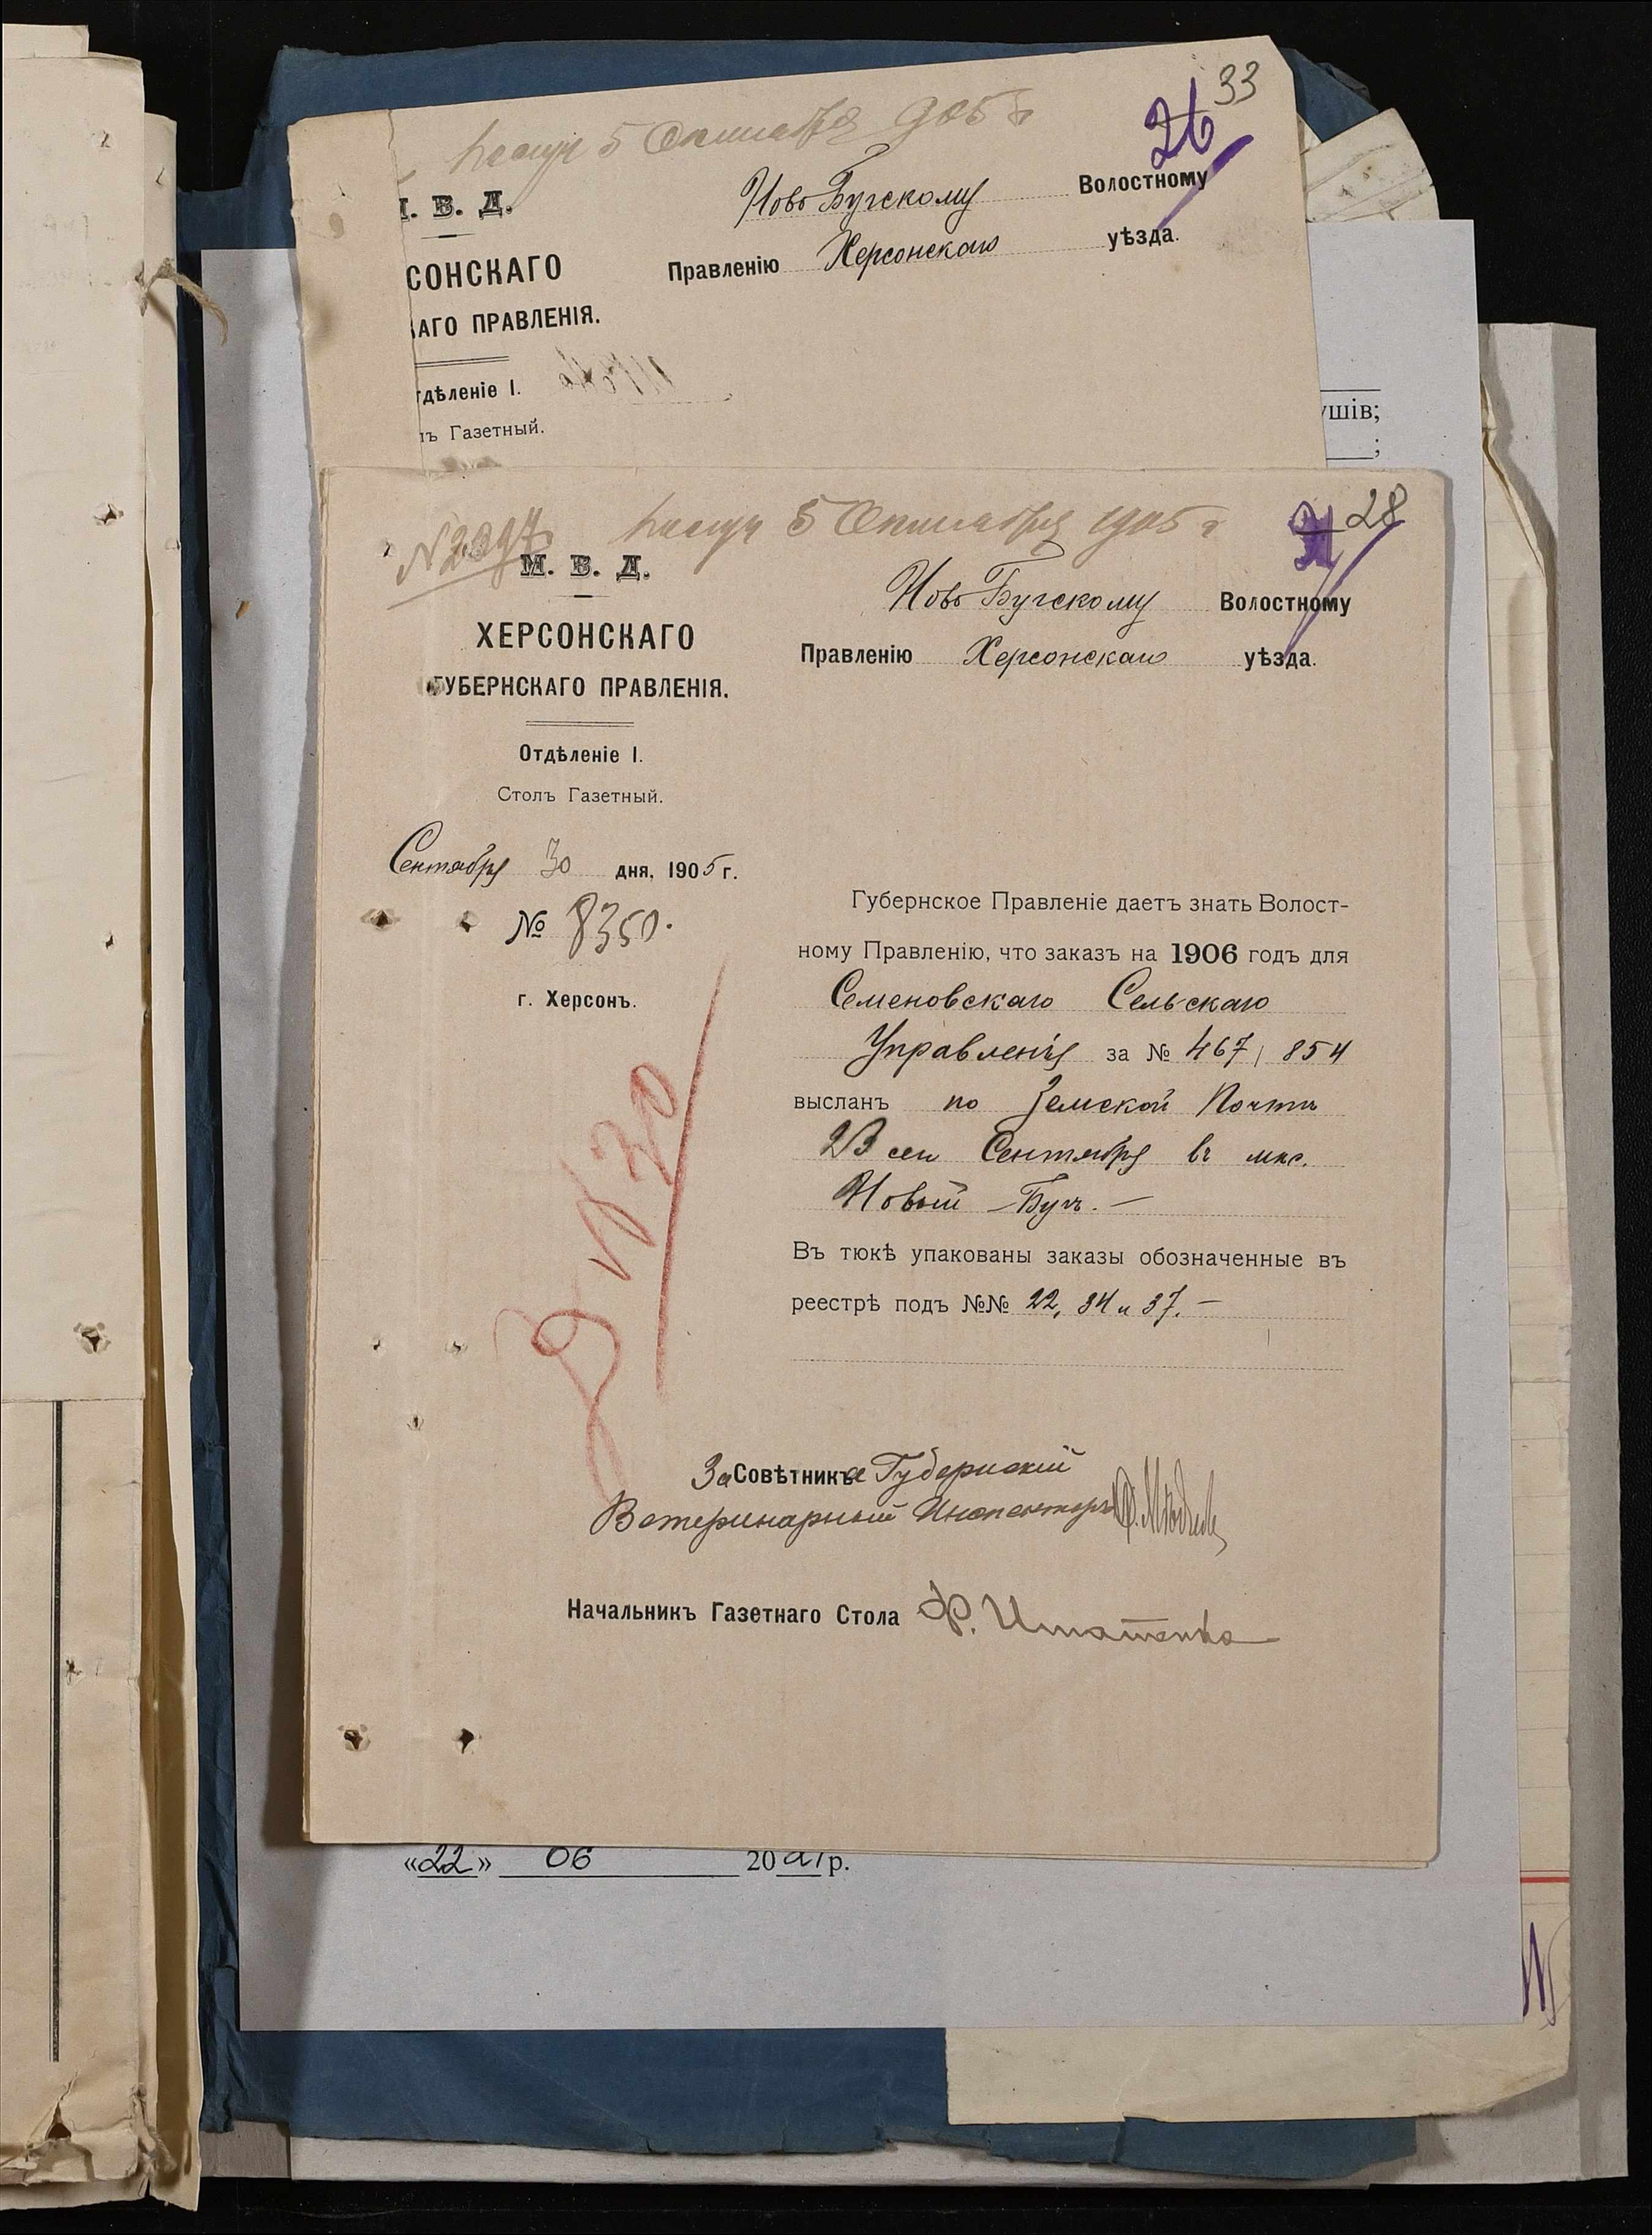 33
26
5 Октября 905 г
Ново Бугскому Волостному
Правленію Херсонскаго уѣзда.
. В. Д.
СОНСКАГО
АГО ПРАВЛЕНІЯ.
дѣленіе I.
ъ Газетный.
ушів;
;
28
5 Октября 1905 г
М. В. Д.
Ново Бугскому Волостному
Правленію Херсонскаго уѣзда.
ХЕРСОНСКАГО
ГУБЕРНСКАГО ПРАВЛЕНІЯ.
Отдѣленіе I.
Столъ Газетный.
Сентября 30 дня, 1905 г.
№ 8350.
г. Херсонъ.
Губернское Правленіе даетъ знать Волост-
ному Правленію, что заказъ на 1906 годъ для
Семеновскаго Сельскаго
Управленія за № 467/854
высланъ по Земской Почтѣ
23 сего Сентября въ
Новый-Бугъ.—
Въ тюкѣ упакованы заказы обозначенные въ
реестрѣ подъ №№ 22, 34 и 37.—
За Совѣтника Губернскій
Ветеринарный Инспекторъ
Начальникъ Газетнаго Стола
«22» 06 2021р.